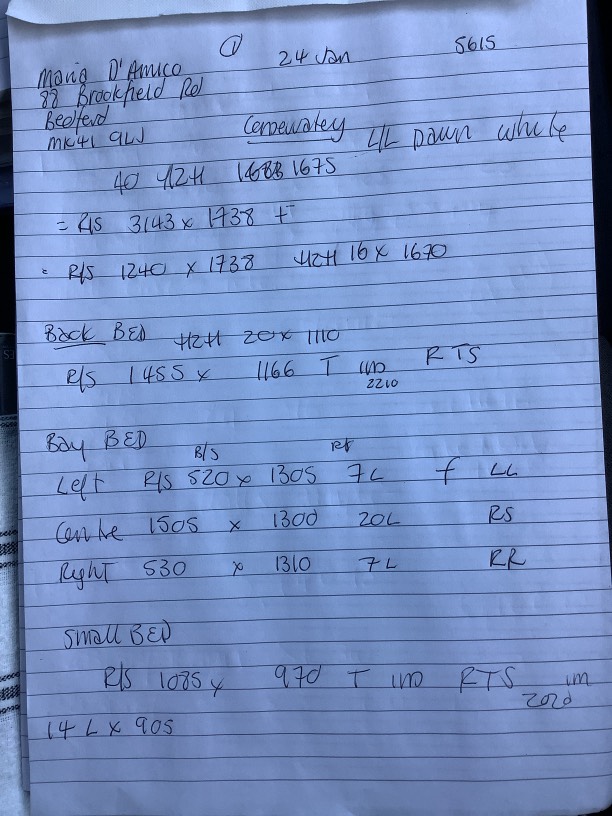 ① 24 Jan 5615
Maria D'Amico
88 Brookfield Rd
Bedford
MK41 9LJ
L/L Dawn white
40 H2H 1675
= R/S 3143 x 1738 T
= R/S 1240 x 1738 H2H 16 x 1670
Back BED H2H 20 x 1110
R/S 1455 x 1166 T RTS
2210
Bay BED
B/S
Left R/S 520 x 1305 7L f LL
Centre 1505 x 1300 20L RS
Right 530 x 1310 7L RR
Small BED
R/S 1085 x 970 T RTS
14 L x 905